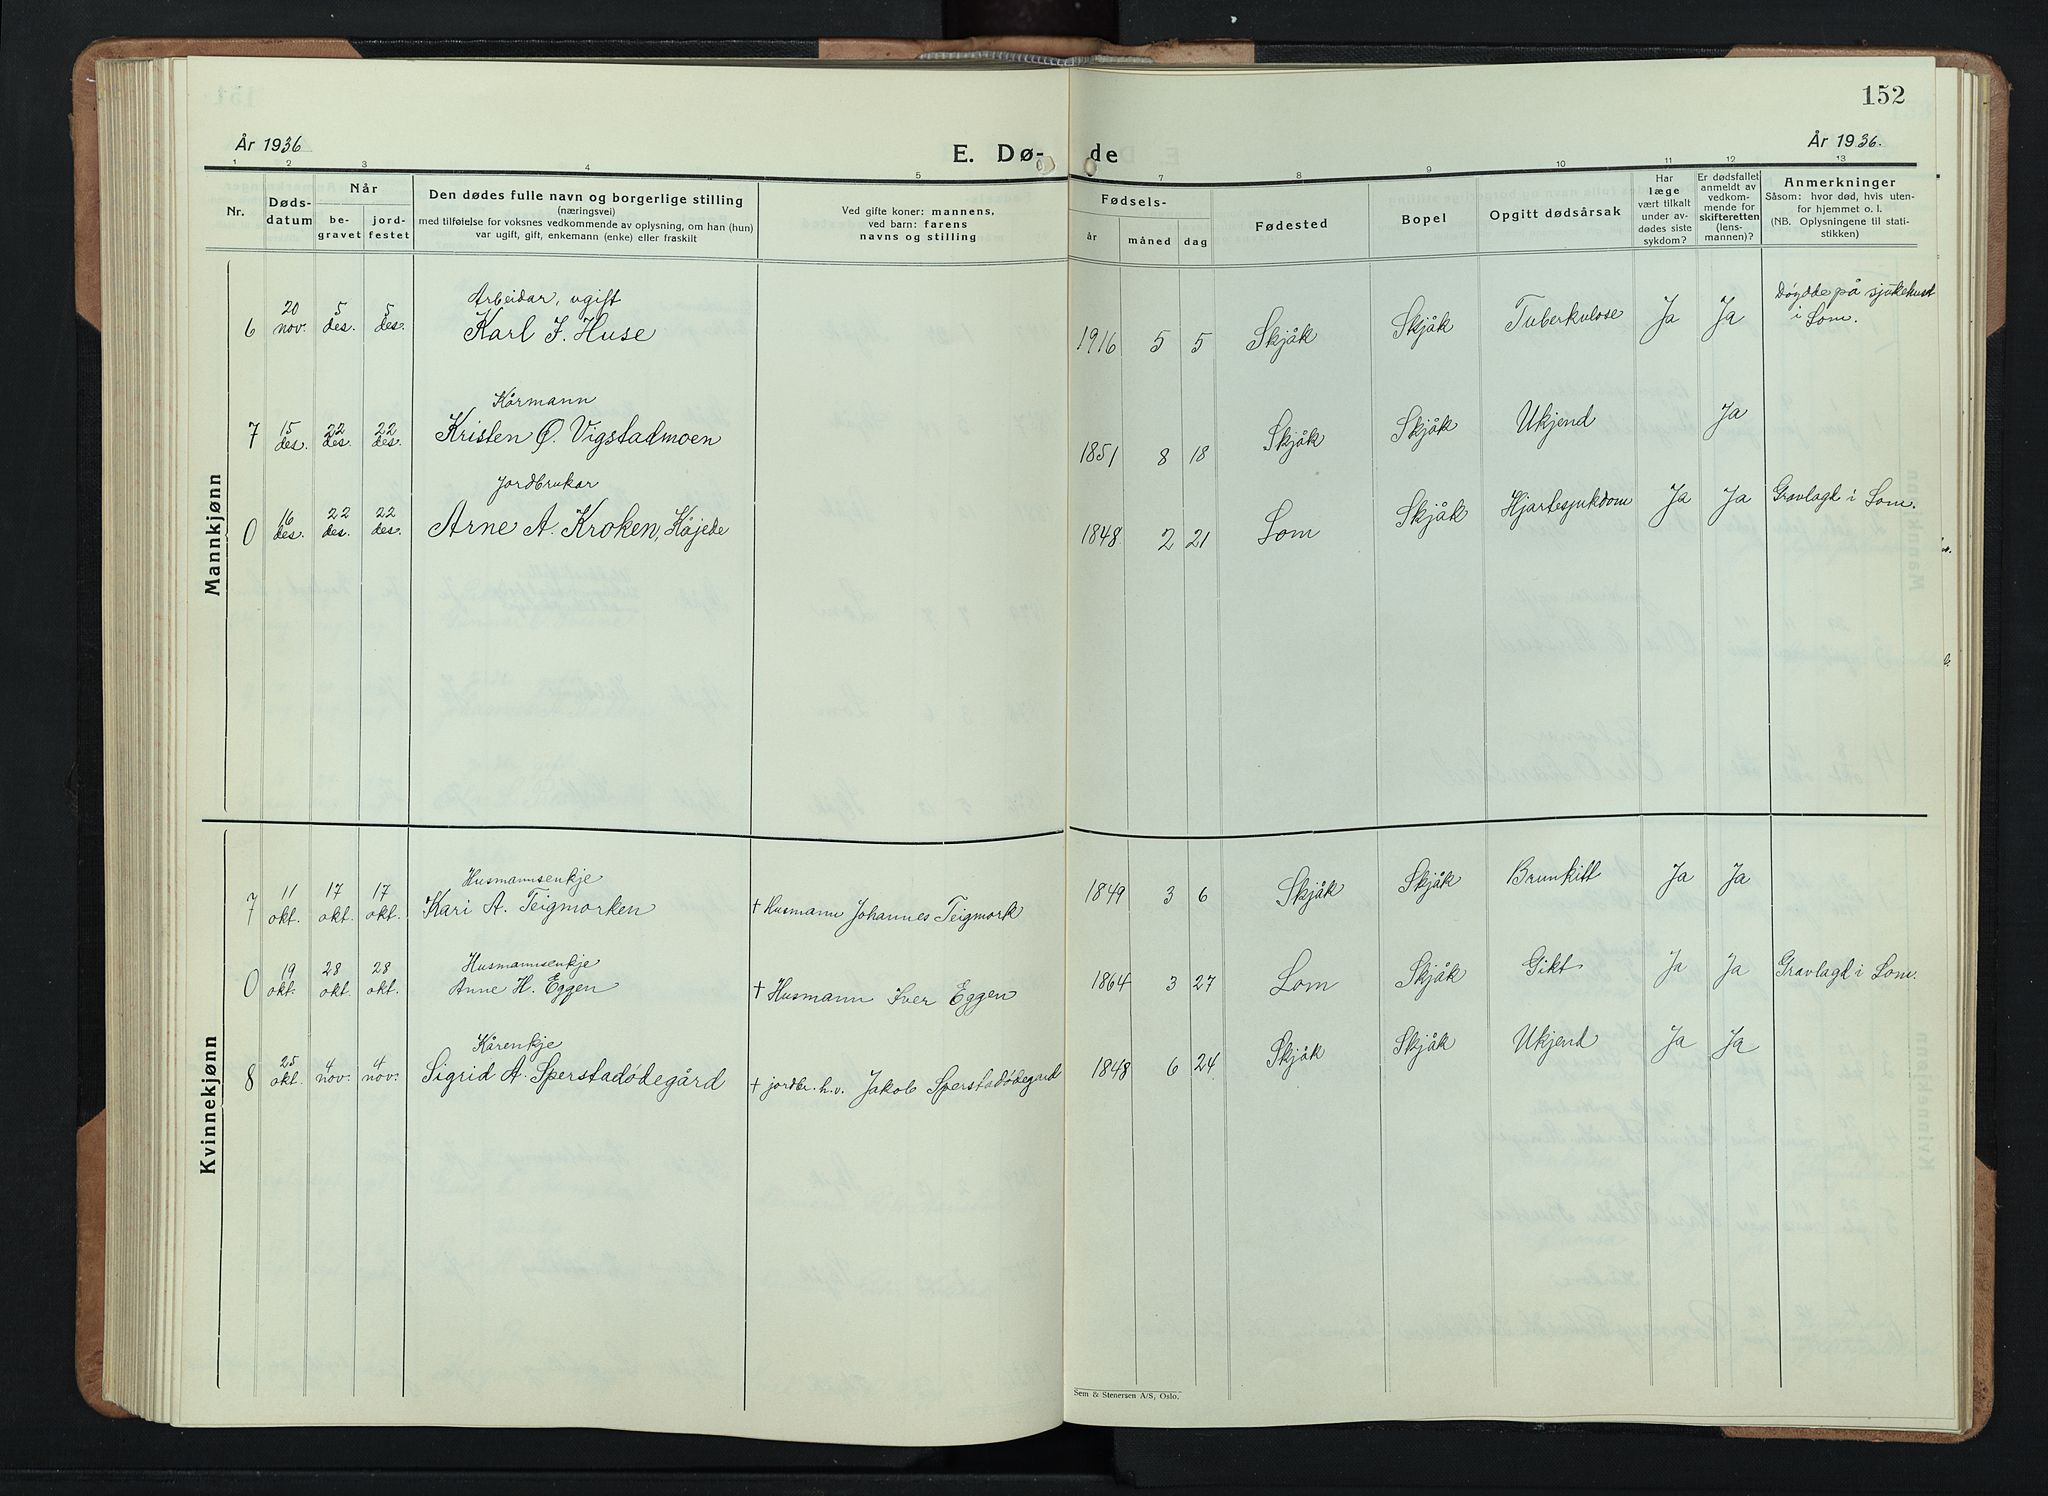 152
År 1936
E. Dø-
de
År 1936.
1 2 3 4 5 7 8 9 10 11 12 13
Nr.
Døds-
datum
Når
be-
gravet
jord-
festet
Den dødes fulle navn og borgerlige stilling
(næringsvei)
med tilføielse for voksnes vedkommende av oplysning, om han (hun)
var ugift, gift, enkemann (enke) eller fraskilt
Ved gifte koner: mannens,
ved barn: farens
navns og stilling
Fødsels-
år måned dag
Fødested
Bopel
Opgitt dødsårsak
Har
læge
vært tilkalt
under av-
dødes siste
sykdom?
Er dødsfallet
anmeldt av
vedkom-
mende for
skifteretten
(lens-
mannen)?
Anmerkninger
Såsom: hvor død, hvis uten-
for hjemmet o. l.
(NB. Oplysningene til stati-
stikken)
Mannkjønn
6 20 nov. 5 des. 5 des. Arbeidar, ugift
Karl J. Huse 1916 5 5 Skjåk Skjåk Tuberkulose Ja Ja Døydde på sjukehuset
i Lom.
7 15 des. 22 des. 22 des. Kårmann
Kristen O. Vigstadmoen 1851 8 18 Skjåk Skjåk Ukjend Ja
0 16 des. 22 des. 22 des. Jordbrukar
Arne A. Kroken, Håjede 1848 2 21 Lom Skjåk Hjartesjukdom Ja Ja Gravlagd i Lom.
Kvinnekjønn
7 11 okt. 17 okt. 17 okt. Husmannsenkje
Kari A. Teigmorken † Husmann Johannes Teigmork 1849 3 6 Skjåk Skjåk Brunkitt Ja Ja
0 19 okt. 28 okt. 28 okt. Husmannsenkje
Anne H. Eggen † Husmann Iver Eggen 1864 3 27 Lom Skjåk Gikt Ja Ja Gravlagd i Lom.
8 25 okt. 4 nov. 4 nov. Kårenkje
Sigrid A. Sperstadødegård † jordbr. h.v. Jakob Sperstadødegard 1848 6 24 Skjåk Skjåk Ukjend Ja Ja
Sem & Stenersen A/S, Oslo.